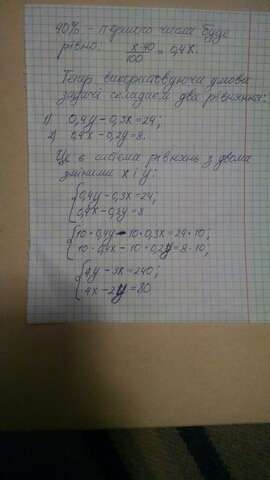 40% - першого числа буде
рівно: x·40/100 = 0,4x.
Тепер використовуючи умова
задачі складаєм два рівняння:
1) 0,4y-0,3x=24;
2) 0,4x-0,2y=8.
Це є система рівнянь з двома
змінними x і y:
{0,4y-0,3x=24;
{0,4x-0,2y=8
{10·0,4y-10·0,3x=24·10;
{10·0,4x-10·0,2y=8·10;
{4y-3x=240;
{4x-2y=80